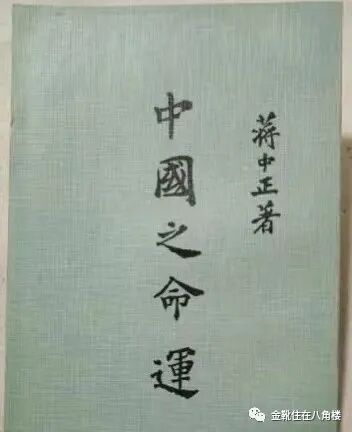 中國之命運
蔣中正著
金靴住在八角楼